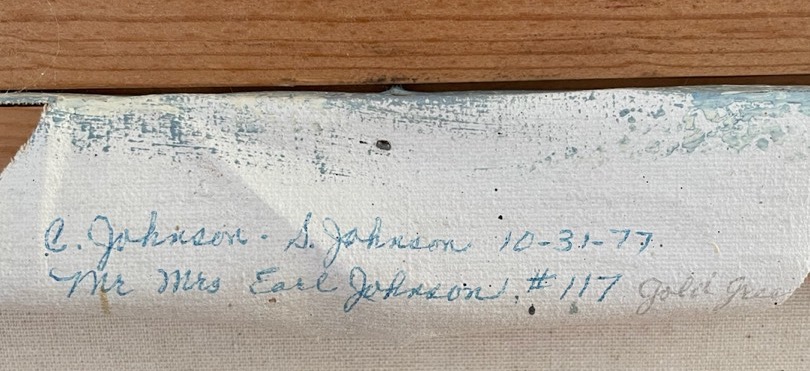 C. Johnson - S. Johnson 10-31-77.
Mr Mrs Earl Johnson #117 Gold